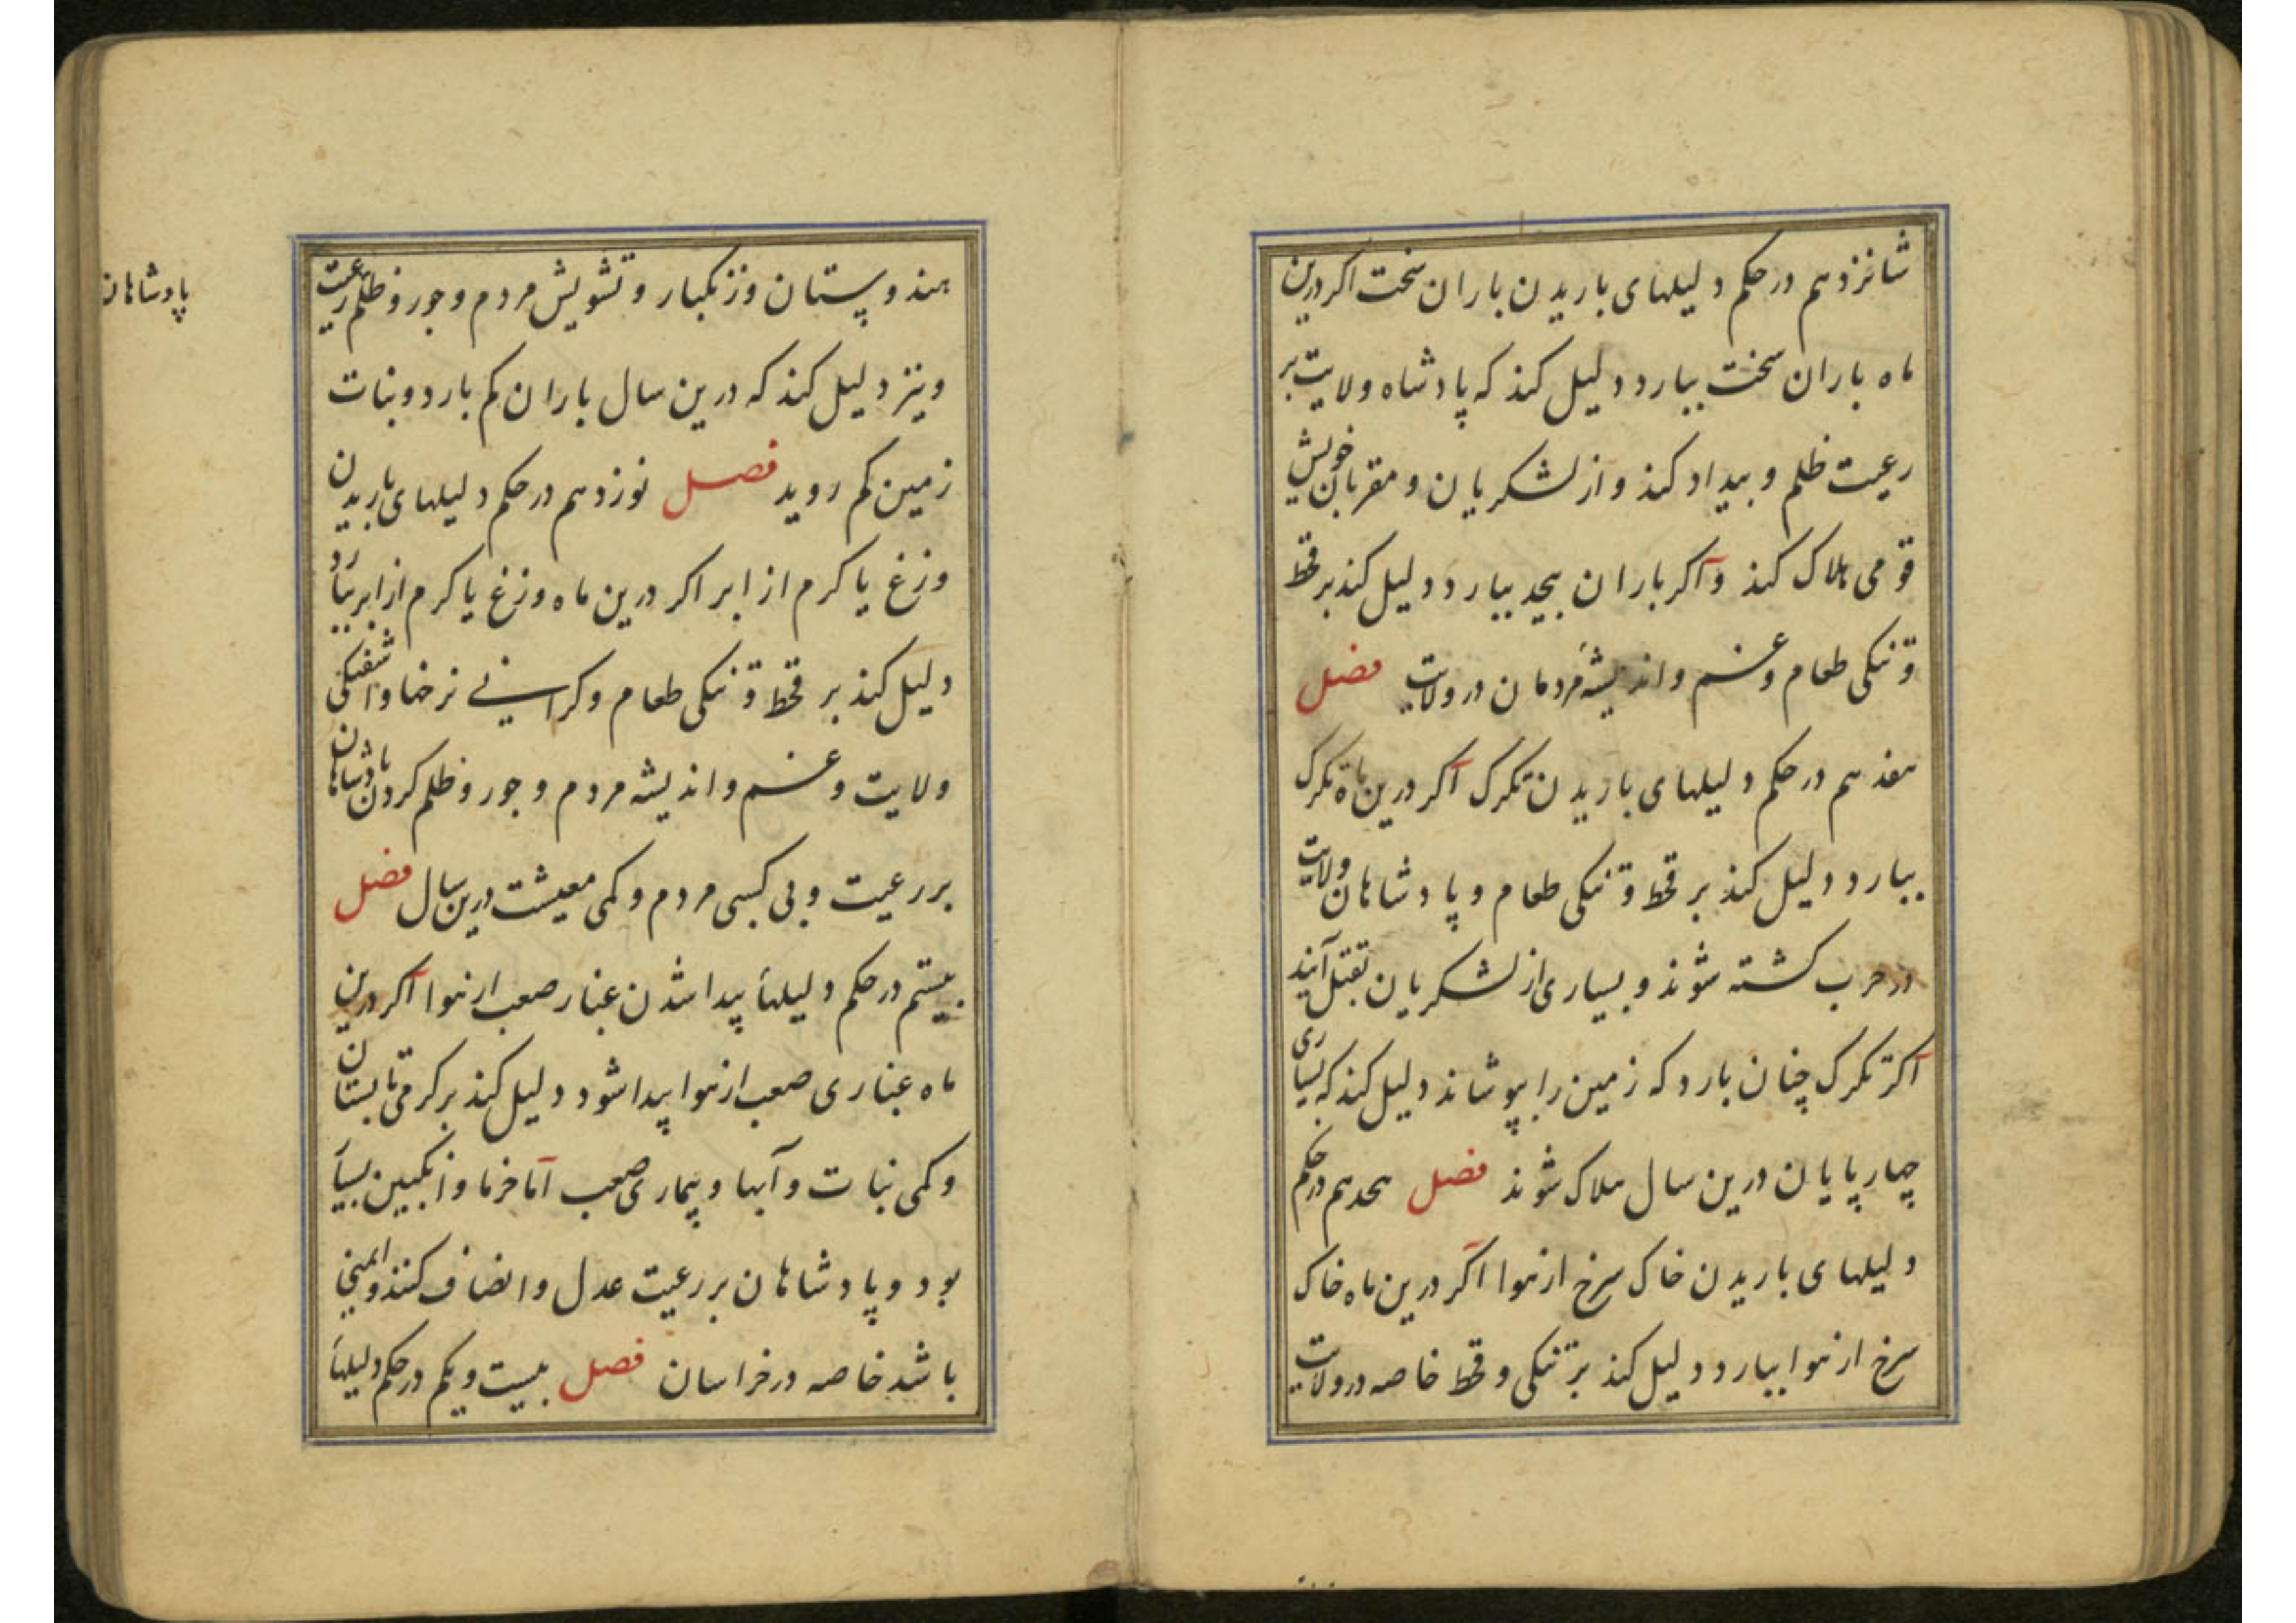 شانزدهم در حکم دلیلهای باریدن باران سخت اکر درین
ماه باران سخت ببارد دلیل کند که پادشاه ولایت بر
رعیت ظلم و بیداد کند و از لشکریان و مقربان خویش
قومی هلاک کند و اکر باران بیحد ببارد دلیل کند بر قحط
و تنکی طعام و غم و اندیشۀ مردمان در ولایت فصل
هفدهم در حکم دلیلهای باریدن تکرک اکر درین ماه تکرک
ببارد دلیل کند بر قحط و تنکی طعام و پادشاهان ولایت
در حرب کشته شوند و بسیاری از لشکریان بقتل آیند
اکر تکرک چنان بارد که زمین را بپوشاند دلیل کند که بسیاری
چهارپایان درین سال هلاک شوند فصل هجدهم در حکم
دلیلهای باریدن خاک سرخ از هوا اکر درین ماه خاک
سرخ از هوا ببارد دلیل کند بر تنکی و قحط خاصه در ولایت
هندوستان و زنکبار و تشویش مردم و جور و ظلم رعیت
پادشاهان
و نیز دلیل کند که درین سال باران کم بارد و نبات
زمین کم روید فصل نوزدهم در حکم دلیلهای باریدن
وزغ یا کرم از ابر اکر درین ماه وزغ یا کرم از ابر ببارد
دلیل کند بر قحط و تنکی طعام و کرانی نرخها و اشفتکی
ولایت و غم و اندیشه مردم و جور و ظلم کردن پادشاهان
بر رعیت و بی کسبی مردم و کمی معیشت درین سال فصل
بیستم در حکم دلیلهاء پیدا شدن غبار صعب از هوا اکر درین
ماه غباری صعب از هوا پیدا شود دلیل کند بر کرمی تابستان
و کمی نبات و آبها و بیماری صعب اما خرما و انکبین بسیار
بود و پادشاهان بر رعیت عدل و انصاف کنند و ایمنی
باشد خاصه در خراسان فصل بیست و یکم در حکم دلیلهاء